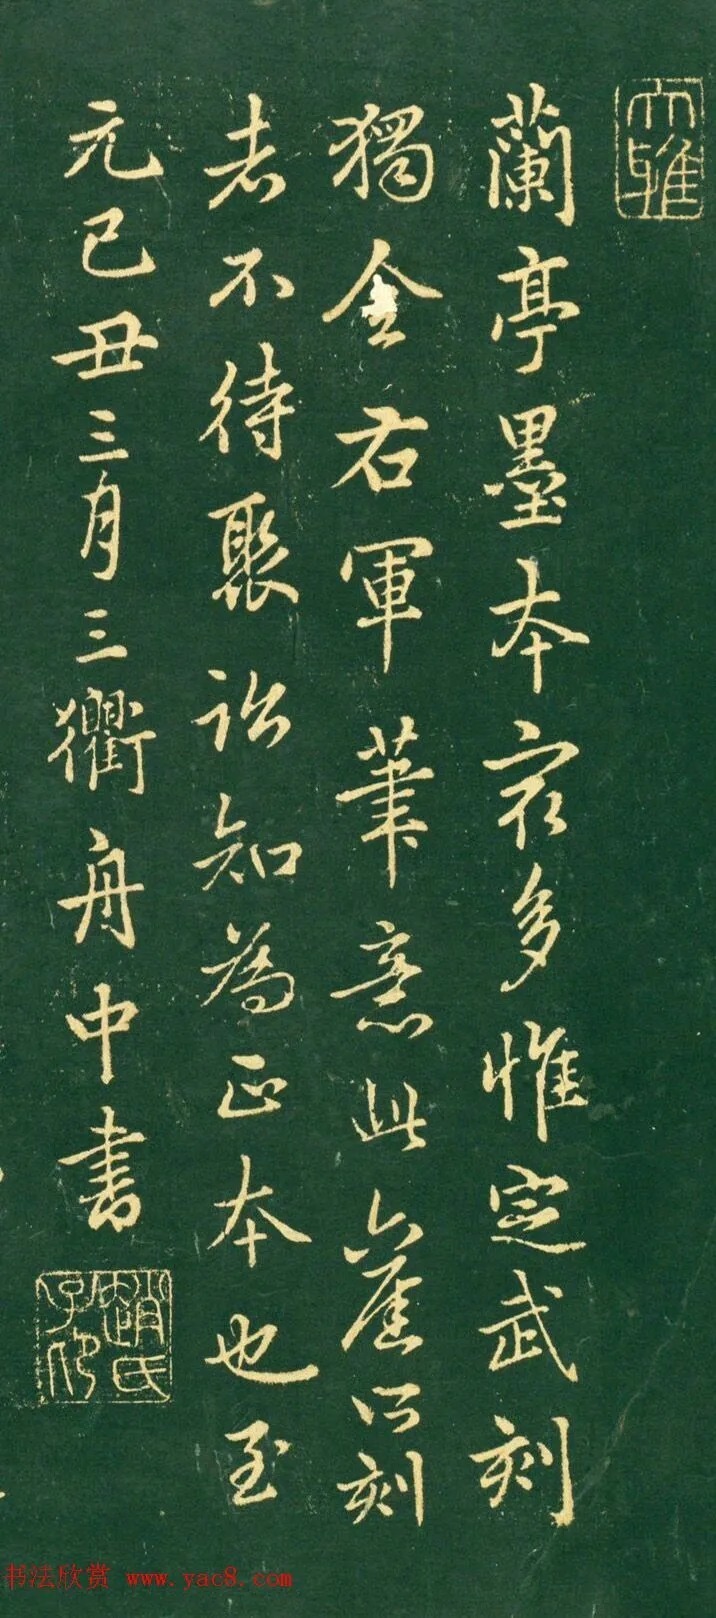 大雅
蘭亭墨本㝡多惟定武刻
獨全右軍筆意此舊所刻
者不待聚訟知為正本也至
元己丑三月三衢舟中書
趙氏子昂
书法欣赏 www.yac8.com